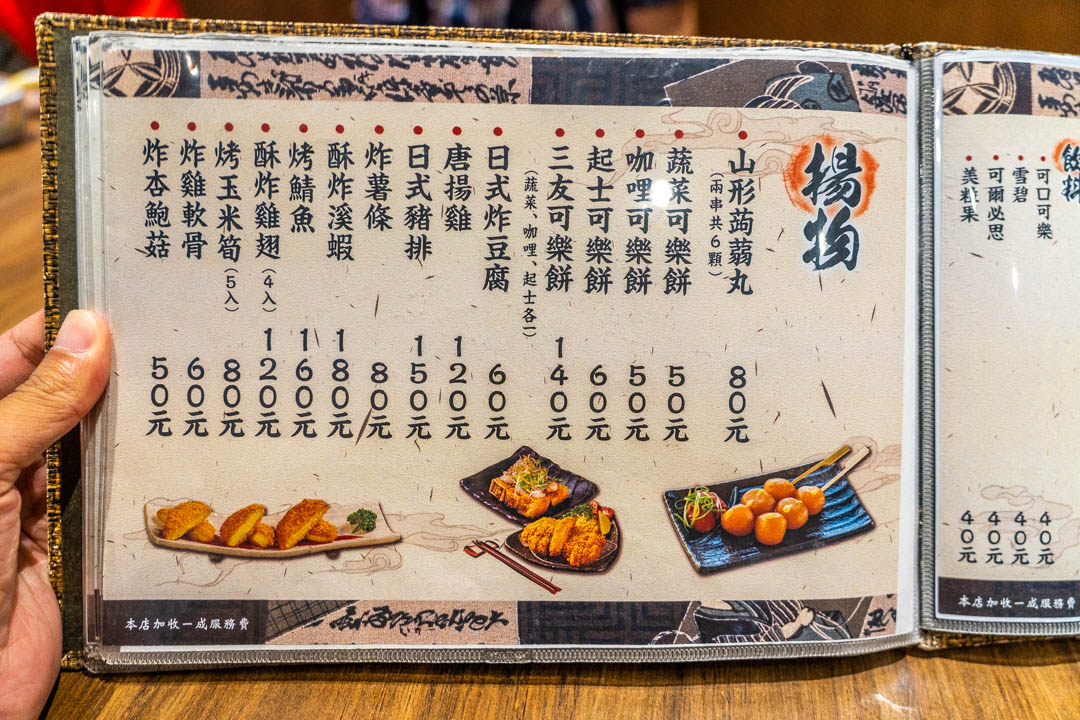 揚物
山形蒟蒻丸
(兩串共6顆)
80元
蔬菜可樂餅
50元
咖哩可樂餅
50元
起士可樂餅
60元
三友可樂餅
(蔬菜、咖哩、起士各一)
140元
日式炸豆腐
60元
唐揚雞
120元
日式豬排
150元
炸薯條
80元
酥炸溪蝦
180元
烤鯖魚
160元
酥炸雞翅(4入)
120元
烤玉米筍(5入)
80元
炸雞軟骨
60元
炸杏鮑菇
50元
本店加收一成服務費
飲料
可口可樂
40元
雪碧
40元
可爾必思
40元
美粒果
40元
本店加收一成服務費